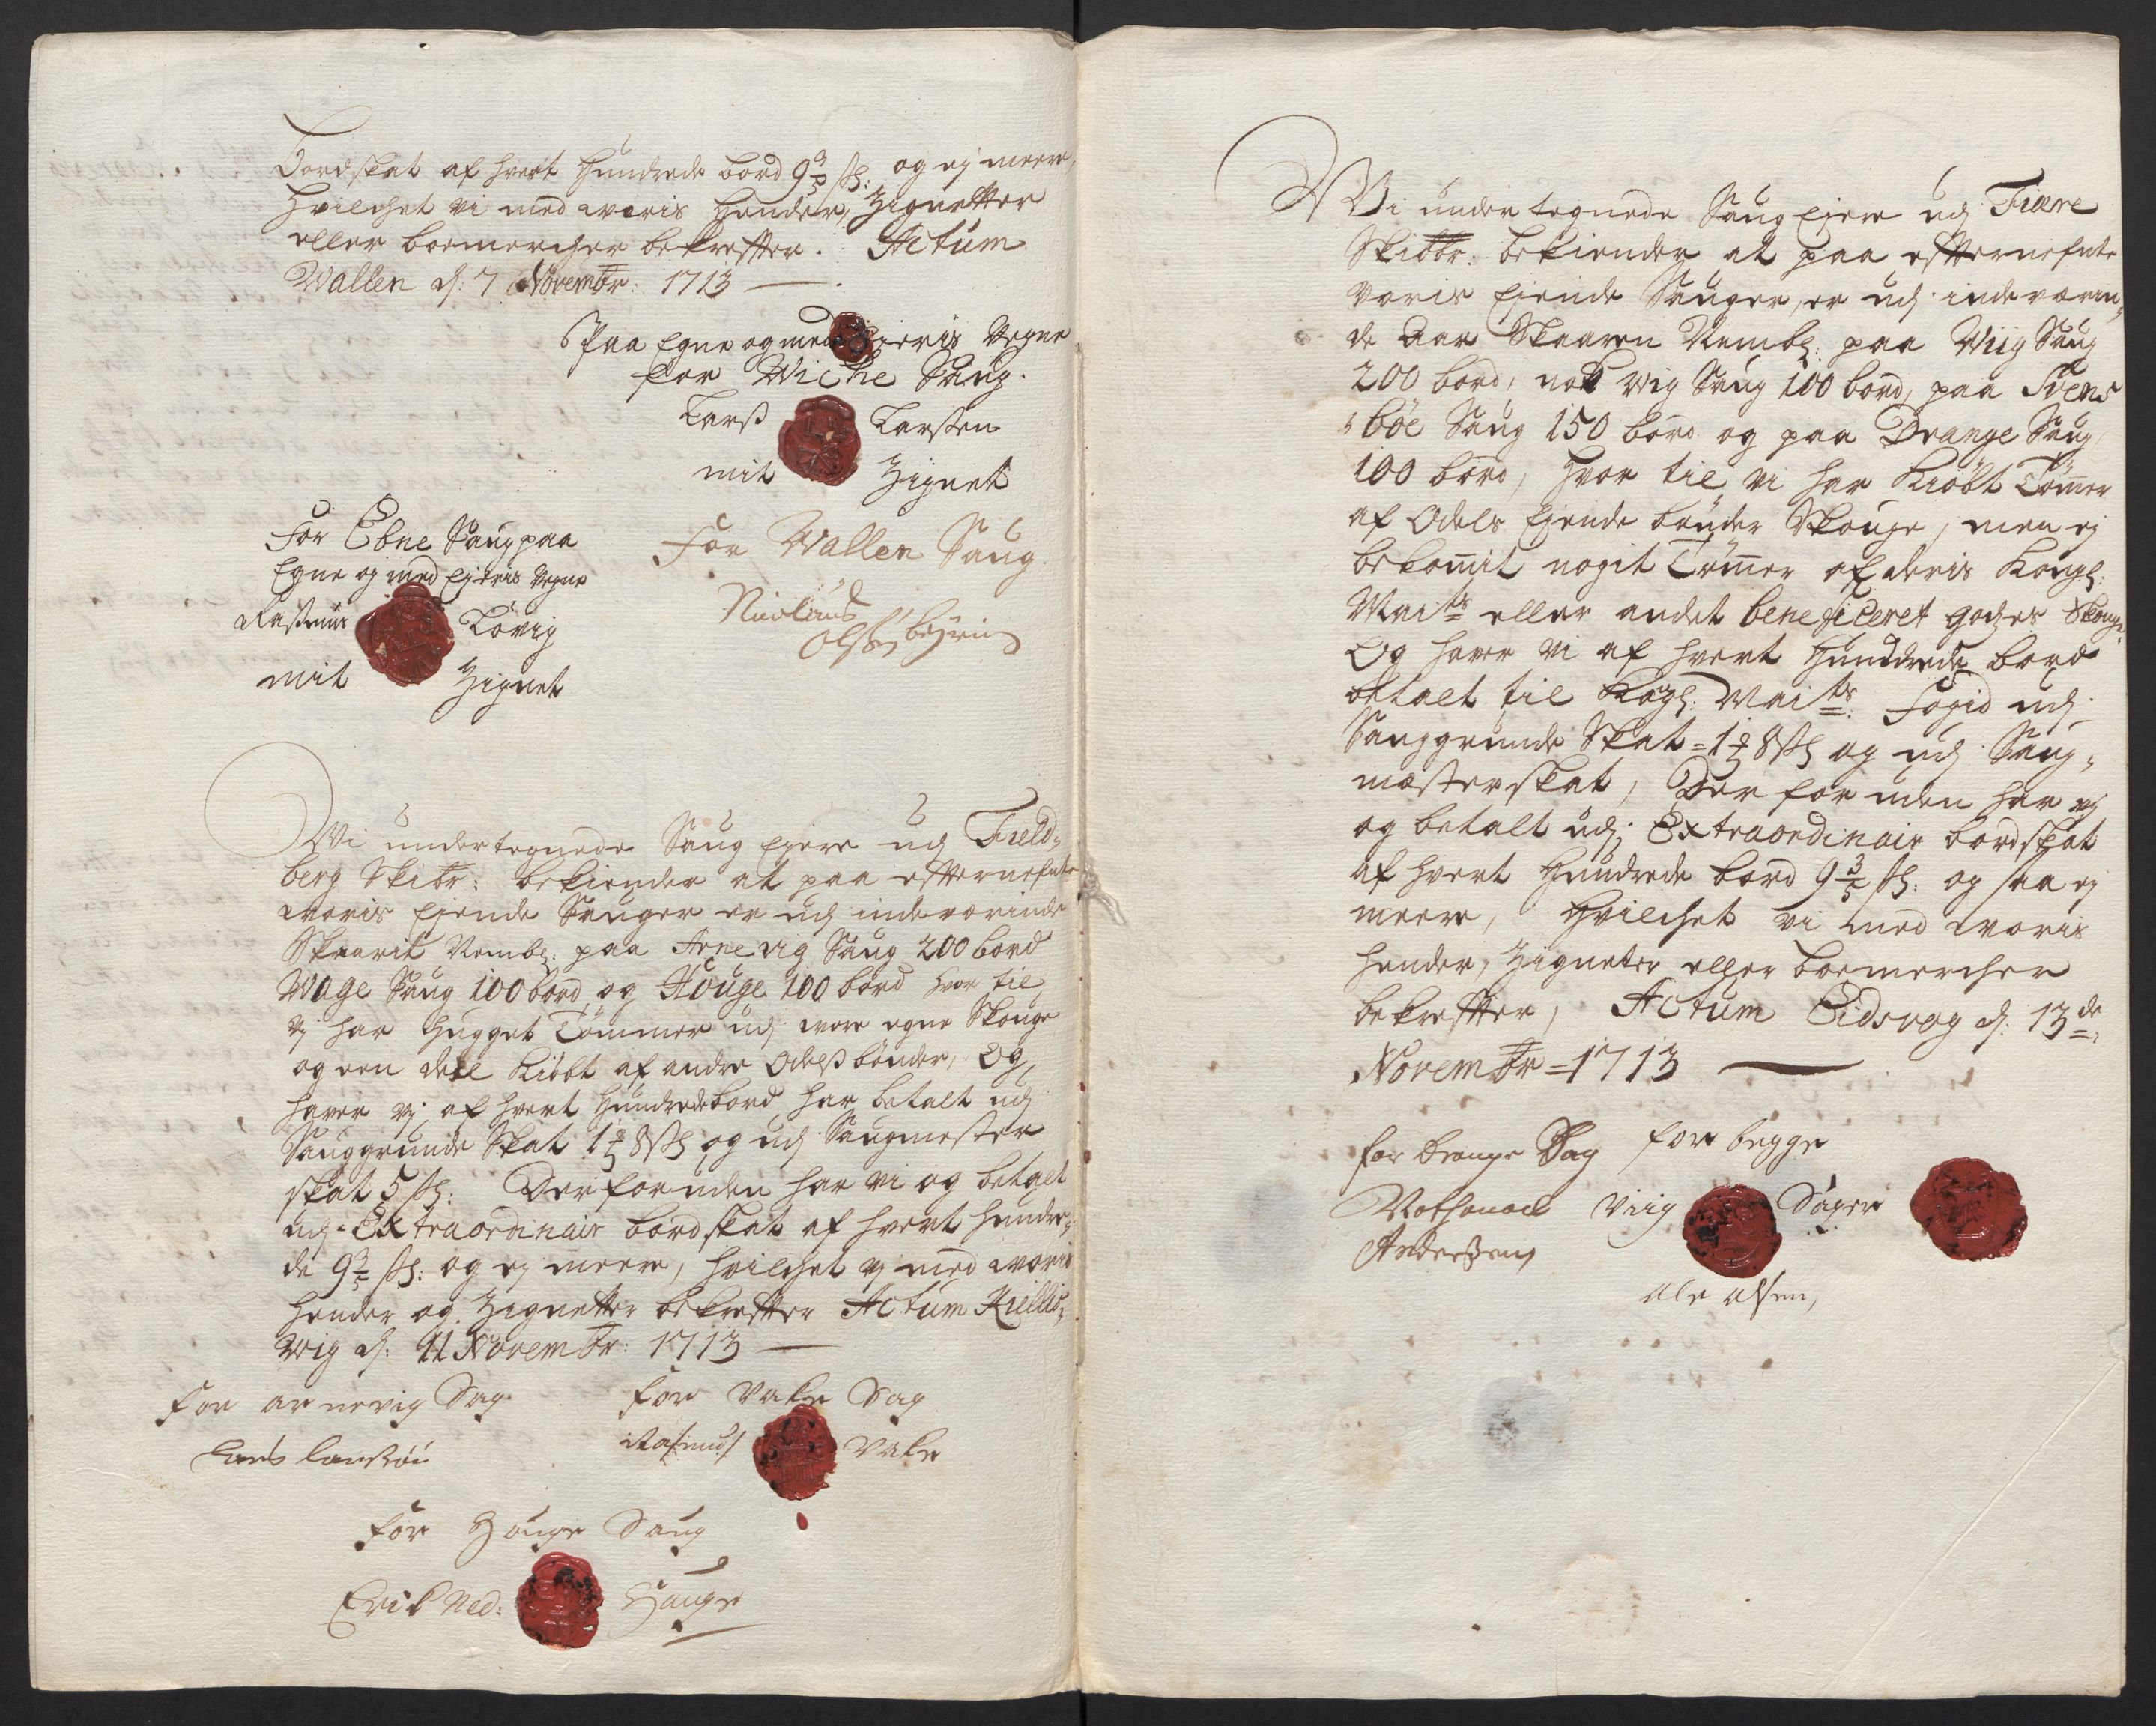 Bordskat af hvert Hundrede bord 9 3/5 ſſ: og ej meere,
Hvilchet vi med woris Hender, Zignetter
eller boemercher bekreffter. Actum
Wallen d: 7 Novembr: 1713
Paa Egne og med Ejeris Vegne
for Wiche Saug.
Larß Larßen
mit Zignet
For Ebne Saug paa
Egne og med Ejeris Vegne
Raßmus Lövig
mit Zignet
For Wallen Saug
Nicolaus
Olß
Wi undertegnede Saug Ejere udj Field-
berg Skibr: bekiender at paa effternefnte
woris Ejende Sauger er udj indeværinde
Skaarit Nembl: paa Arnevig Saug 200 bord
Wage Saug 100 bord, og Houge 100 bord hvor til
vj har hugget Tömmer udj wore egne Skouge
og een deel Kiöbt af andre Odelß bönder, Og
haver vj af hvert Hundrede bord har betalt udj
Sauggrunde Skat 1 8 ſſ og udj Saugmester
skat 5 ſſ: Der foruden har vi og betalt
udj Extraordinair bordskat af hvert hundre-
de 9 3/5 ſſ: og ej meere, hvilchet vj med woris
Hender og Zignetter bekreffter Actum Kields-
wig d: 11 Novembr: 1713
For arnevig Sag
Lars
for Vake Sag
Rasmus Vake
for Houge Saug
Erik Ned: Houge
Wi undertegnede Saug Ejere udj Fiære
Skibbr: bekiender at paa effternefnte
voris Ejende Sauger, er udj indeværen-
de Aar Skaaren Nembl: paa Wiig Saug
200 bord, nok Wig Saug 100 bord, paa Svens
böe Saug 150 bord og paa Drange Saug
100 bord, hvor til vi har Kiöbt Tömer
af Odels Ejende bönder Skouge, men ej
bekomit nogit Tömer af deris Kongl:
Maits eller andet beneficeret godzes Skouge.
Og haver vi af hvert Hunddrede bord
betalt til Kogl: Maits. Fogid udj
Sauggrunde Skat = 1 8 ſſ og udj Saug-
mæsterskat, Der foruden har vj
og betalt udj Extraordinair bordskat
af hvert Hundrede bord 9 3/5 ſſ: og saa ej
meere, Hvilchet vi med woris
hender, Zigneter eller boemercher
bekreffter, Actum Eidsvog d: 13de
Novembr = 1713
for Drange Sag
Nathanael
Anderßen
for begge
Viig Sager
Ole Olsen,